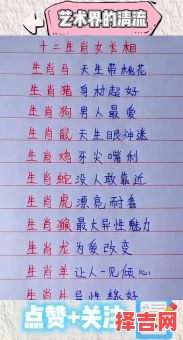 艺术界的清流
十二生肖女长相
生肖马 天生带桃花
生肖猪 身材超好
生肖狗 男人最爱
生肖鼠 天生眼神迷
生肖鸡 牙尖嘴利
生肖蛇 没人敢靠近
生肖虎 漂亮耐看
生肖猴 最大异性魅力
生肖龙 为爱改变
生肖羊 让人一见倾心
生肖牛 异性缘好
点赞+关注
择吉网
zejiwang.com